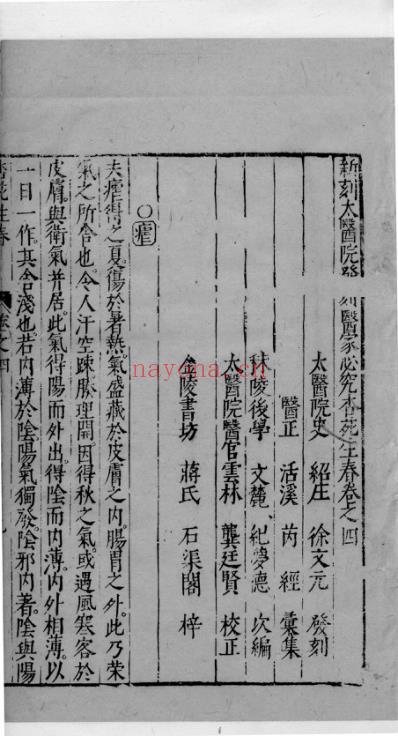 新刻太醫院發刻醫家必究杏苑生春卷之四
太醫院史 紹庄 徐文元 發刻
醫正 活溪 芮 經 彙集
秣陵後學 文麓 紀夢德 次編
太醫院醫官雲林 龔廷賢 校正
金陵書坊 蔣氏 石渠閣 梓
○瘧
夫瘧得之夏傷於暑熱氣盛藏於皮膚之內腸胃之外此乃荣
氣之所舍也令人汗空踈腠理開因得秋之氣或遇風寒客於
皮膚與衛氣并居此氣得陽而外出得陰而内薄内外相薄以
一日一作其舍淺也若内薄於陰陽氣獨發陰邪內著陰與陽
杏苑生春 卷之四
nayona.cn